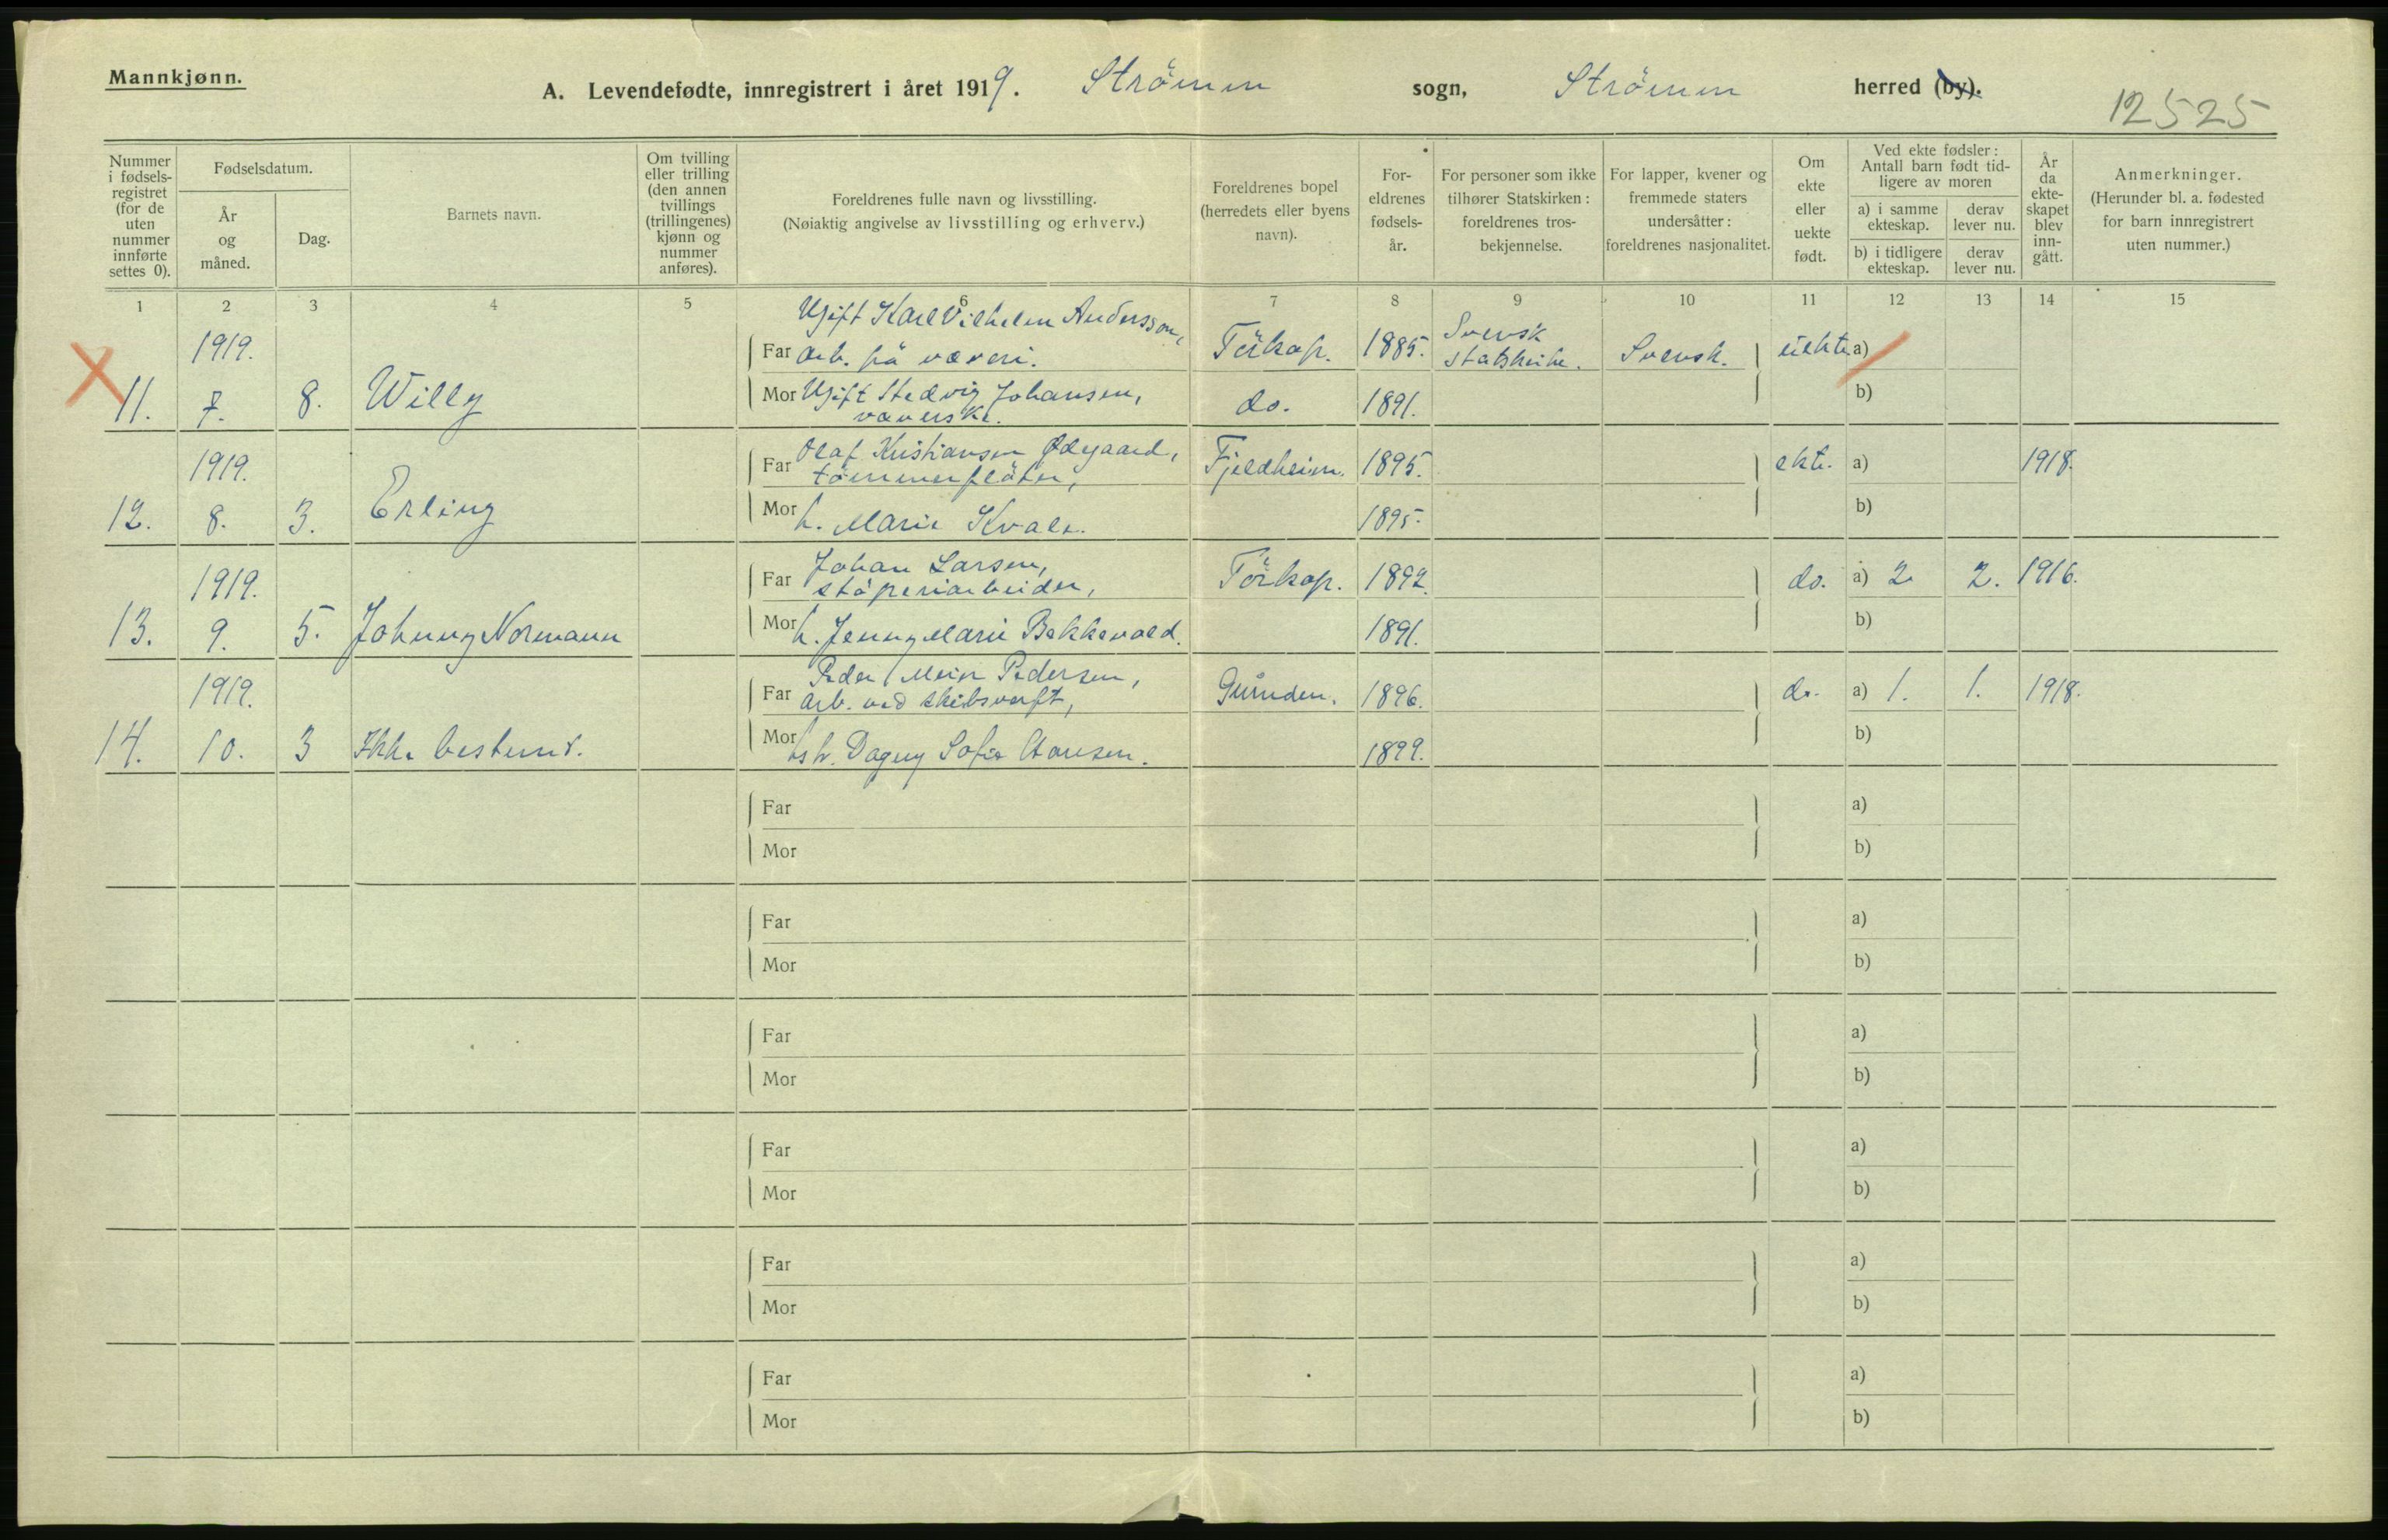 Mannkjønn.
A. Levendefødte, innregistrert i året 1919. Strömm sogn, Strömm herred (by).
12525
Nummer i fødsels-registret (for de uten nummer innførte settes 0).
Fødselsdatum.
År og måned.
Dag.
Barnets navn.
Om tvilling eller trilling (den annen tvillings (trillingenes) kjønn og nummer anføres).
Foreldrenes fulle navn og livsstilling.
(Nøiaktig angivelse av livsstilling og erhverv.)
Foreldrenes bopel (herredets eller byens navn).
For-eldrenes fødsels-år.
For personer som ikke tilhører Statskirken: foreldrenes tros-bekjennelse.
For lapper, kvener og fremmede staters undersåtter: foreldrenes nasjonalitet.
Om ekte eller uekte født.
Ved ekte fødsler: Antall barn født tid-ligere av moren
a) i samme ekteskap.
derav lever nu.
b) i tidligere ekteskap.
derav lever nu.
År da ekte-skapet blev inn-gått.
Anmerkninger.
(Herunder bl. a. fødested for barn innregistrert uten nummer.)
1 2 3 4 5 6 7 8 9 10 11 12 13 14 15
Ugift Karl Vilhelm Andersson,
1919. Far Arb. på væveri. Törkop. 1885. Svensk statskirke. Svensk. uekte a)
11. 7. 8. Willy Mor Ugift Hedvig Johansen, do. 1891. b)
væverske.
Olaf Kristiansen Ødegaard,
1919. Far tömmerflöter, Fjeldheim. 1895. ekte. a) 1918.
12. 8. 3. Erling Mor h. Marie Kvale. 1895. b)
Johan Larsen,
1919. Far stöperiarbeider, Törkop. 1892. do. a) 2 2. 1916.
13. 9. 5. Johnny Normann Mor h. Jenny Marie Bakkevold. 1891. b)
Peder Meier Pedersen,
1919. Far Arb. ved skibsverft, Grunden. 1896. do. a) 1. 1. 1918.
14. 10. 3 Ikke bestemt. Mor h. Dagny Sofie Hansen. 1899. b)
Far a)
Mor b)
Far a)
Mor b)
Far a)
Mor b)
Far a)
Mor b)
Far a)
Mor b)
Far a)
Mor b)